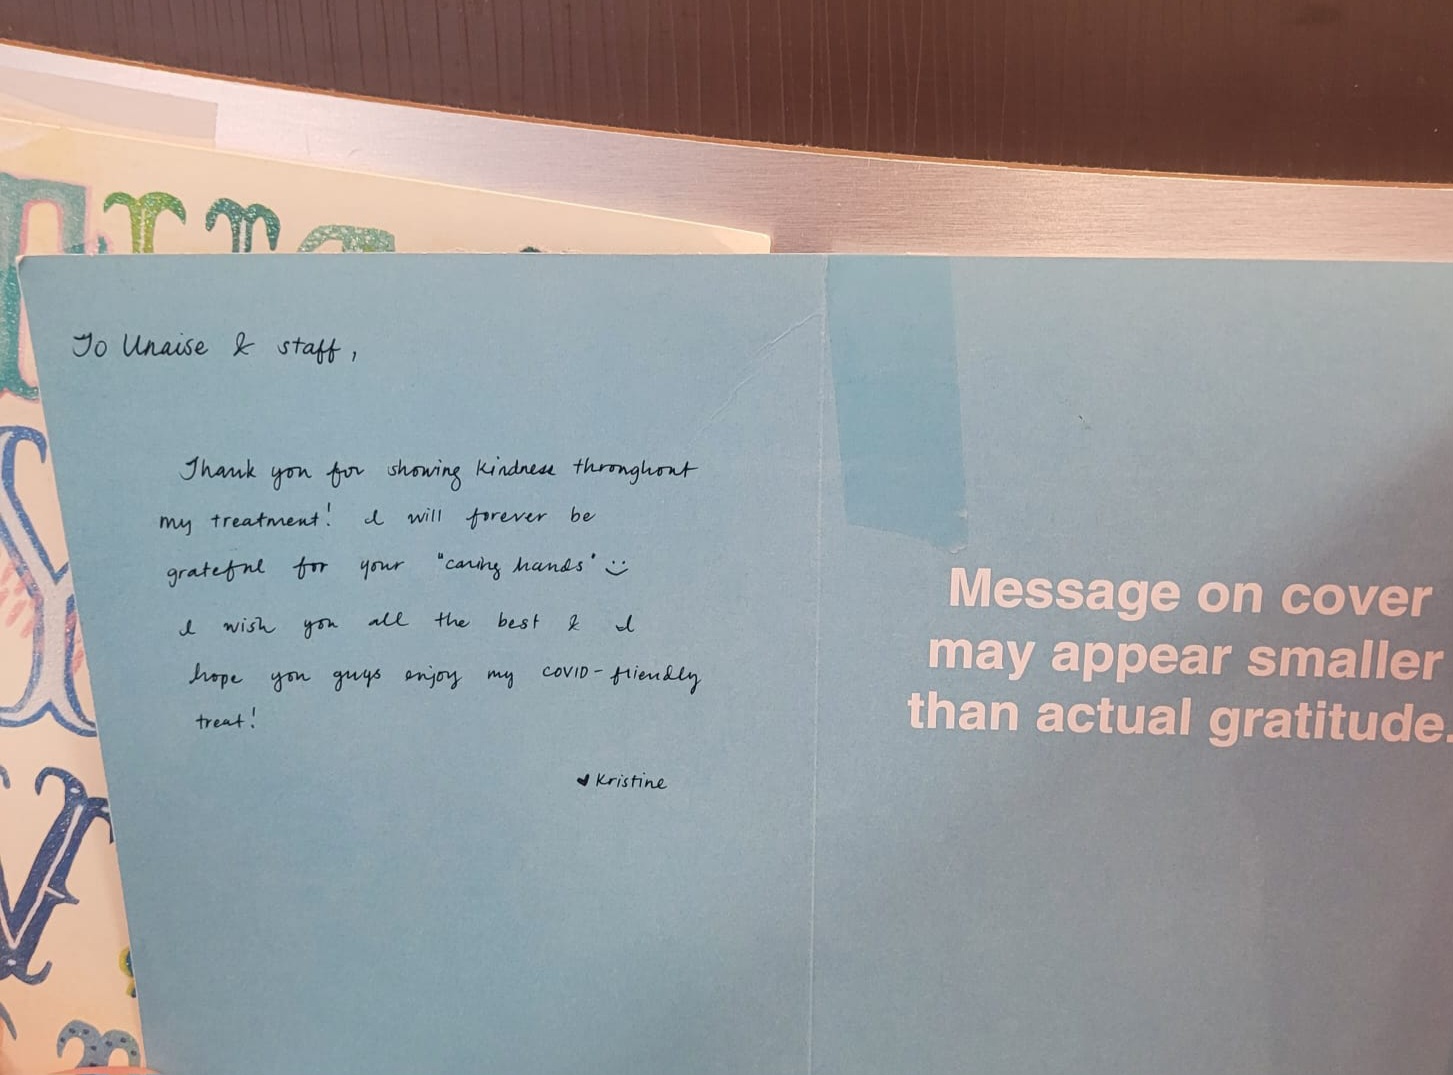 To Unaise & staff,
Thank you for showing kindness throughout
my treatment! I will forever be
grateful for your "caring hands" :)
I wish you all the best & I
hope you guys enjoy my COVID-friendly
treat!
♥ Kristine
Message on cover
may appear smaller
than actual gratitude.